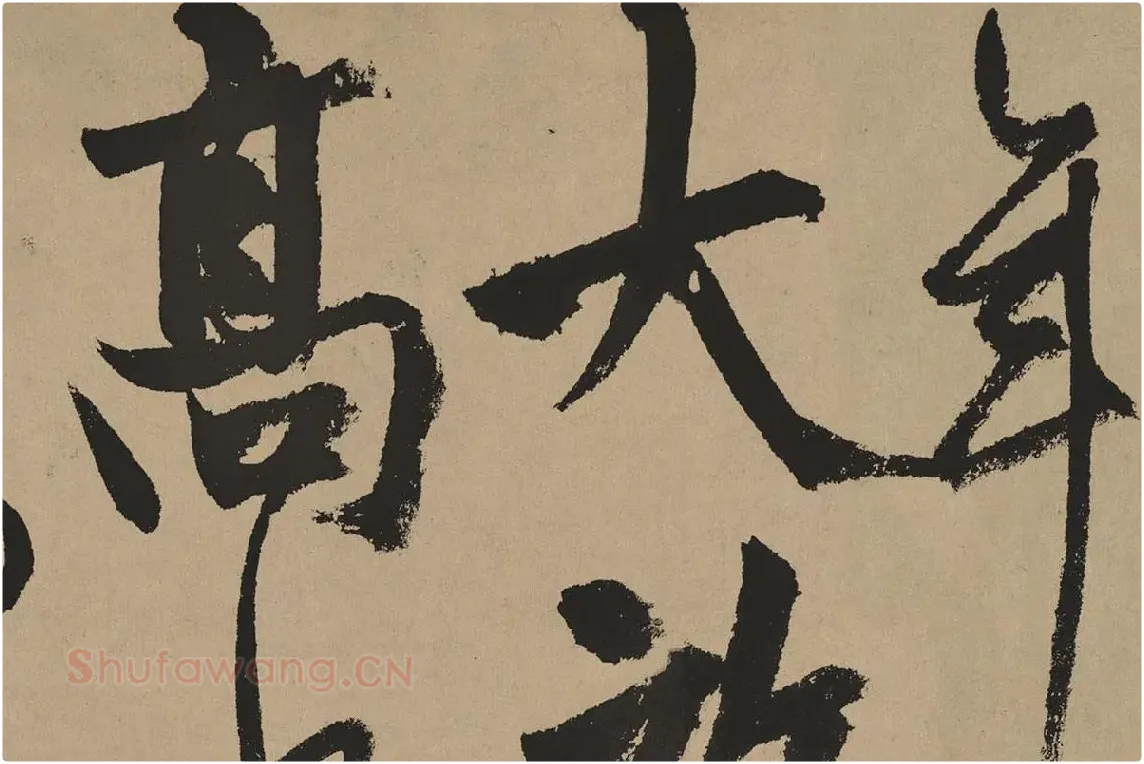 年
大
高
Shufawang.CN